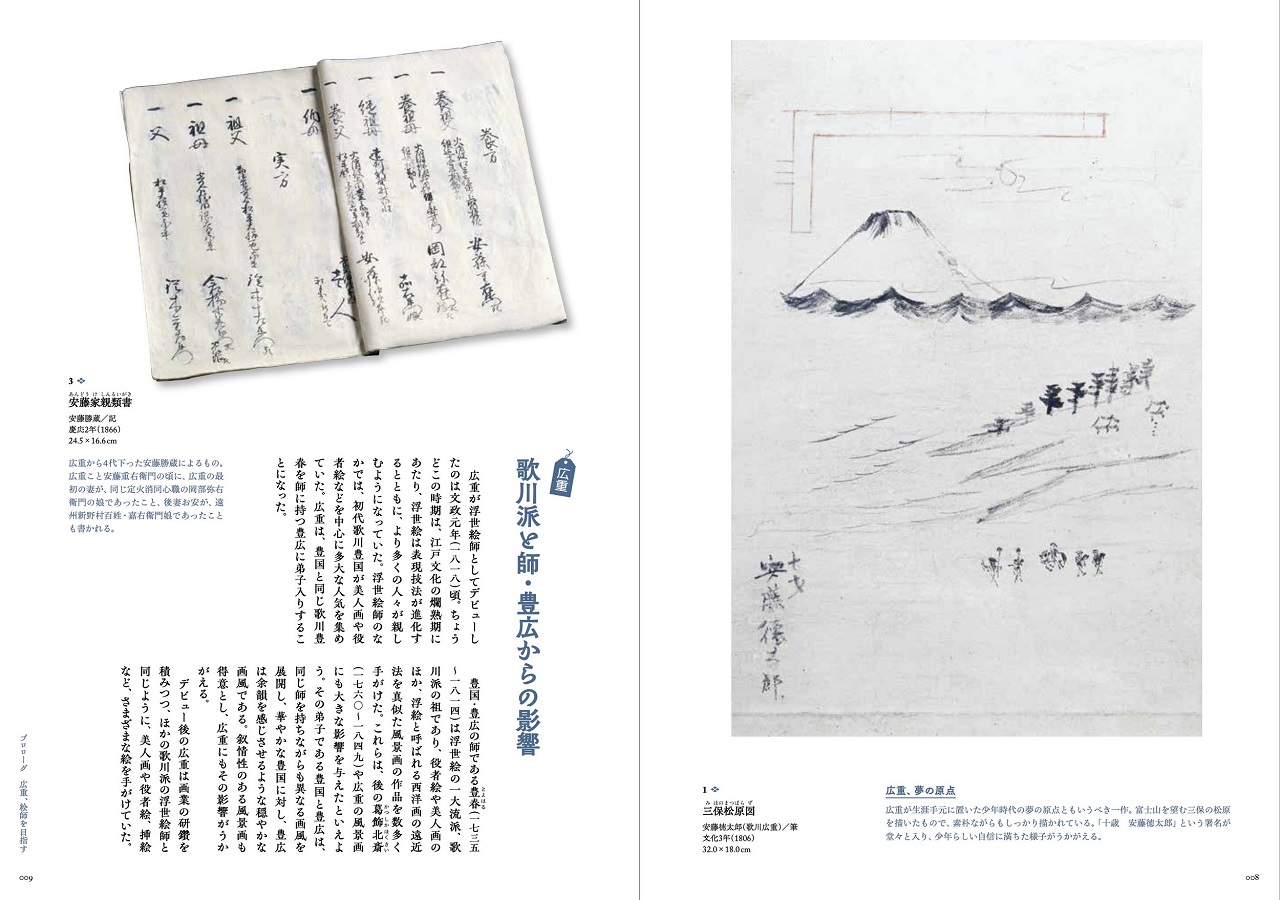 十才
安藤徳太郎
1
みほのまつばらず
三保松原図
安藤徳太郎(歌川広重)/筆
文化3年(1806)
32.0×18.0cm
広重、夢の原点
広重が生涯手元に置いた少年時代の夢の原点ともいうべき一作。富士山を望む三保の松原
を描いたもので、素朴ながらもしっかり描かれている。「十歳　安藤徳太郎」という署名が
堂々と入り、少年らしい自信に満ちた様子がうかがえる。
008
養方
一 養祖父
一 養祖母
一 養父
一 伯母
実方
一 祖父
一 祖母
一 父
3
あんどうけしんるいがき
安藤家親類書
安藤勝蔵/記
慶応2年(1866)
24.5×16.6cm
広重から4代下った安藤勝蔵によるもの。
広重こと安藤重右衛門の頃に、広重の最
初の妻が、同じ定火消同心職の岡部弥右
衛門の娘であったこと、後妻お安が、遠
州新野村百姓・嘉右衛門娘であったこと
も書かれる。
広重
歌川派と師・豊広からの影響
広重が浮世絵師としてデビューし
たのは文政元年(一八一八)頃。ちょう
どこの時期は、江戸文化の爛熟期に
あたり、浮世絵は表現技法が進化す
るとともに、より多くの人々が親し
むようになっていた。浮世絵師のな
かでは、初代歌川豊国が美人画や役
者絵などを中心に多大な人気を集め
ていた。広重は、豊国と同じ歌川豊
春を師に持つ豊広に弟子入りするこ
とになった。
豊国・豊広の師である豊春(一七三五
とよはる
〜一八一四)は浮世絵の一大流派、歌
川派の祖であり、役者絵や美人画の
ほか、浮絵と呼ばれる西洋画の遠近
法を真似た風景画の作品を数多く
手がけた。これらは、後の葛飾北斎
かつしかほくさい
(一七六〇〜一八四九)や広重の風景画
にも大きな影響を与えたといえよ
う。その弟子である豊国と豊広は、
同じ師を持ちながらも異なる画風を
展開し、華やかな豊国に対し、豊広
は余韻を感じさせるような穏やかな
画風である。叙情性のある風景画も
得意とし、広重にもその影響がうか
がえる。
デビュー後の広重は画業の研鑽を
積みつつ、ほかの歌川派の浮世絵師と
同じように、美人画や役者絵、挿絵
など、さまざまな絵を手がけていた。
プロローグ　広重、絵師を目指す
009